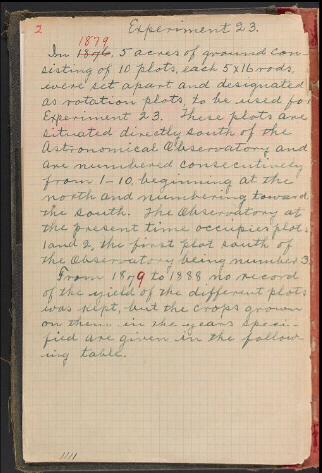 2
Experiment 23.
1879
In 1876, 5 acres of ground con-
sisting of 10 plots, each 5x16 rods,
were set apart and designated
as rotation plots, to be used for
Experiment 23. These plots are
situated directly south of the
Astronomical Observatory and
are numbered consecutively
from 1-10, beginning at the
north and numbering toward
the south. The Observatory at
the present time occupies plots
1 and 2, the first plot south of
the Observatory being number 3.
From 1879 to 1888 no record
of the yield of the different plots
was kept, but the crops grown
on them in the years speci-
fied are given in the follow-
ing table.